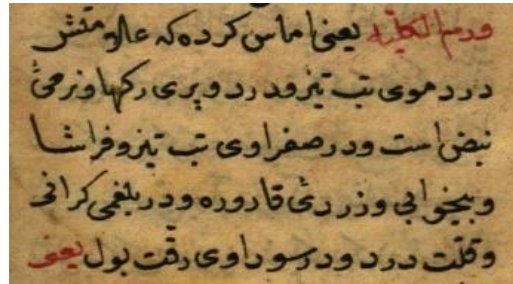 ورم الکلیه یعنی اماس کرده که علامتش
در دموی تب تیز و درد و پری رکها و نرمی
نبض است و در صفراوی تب تیز و فراشا
و بیخوابی و زردی قاروره و در بلغمی کرانی
و قلت درد و در سوداوی رقت بول یعنی